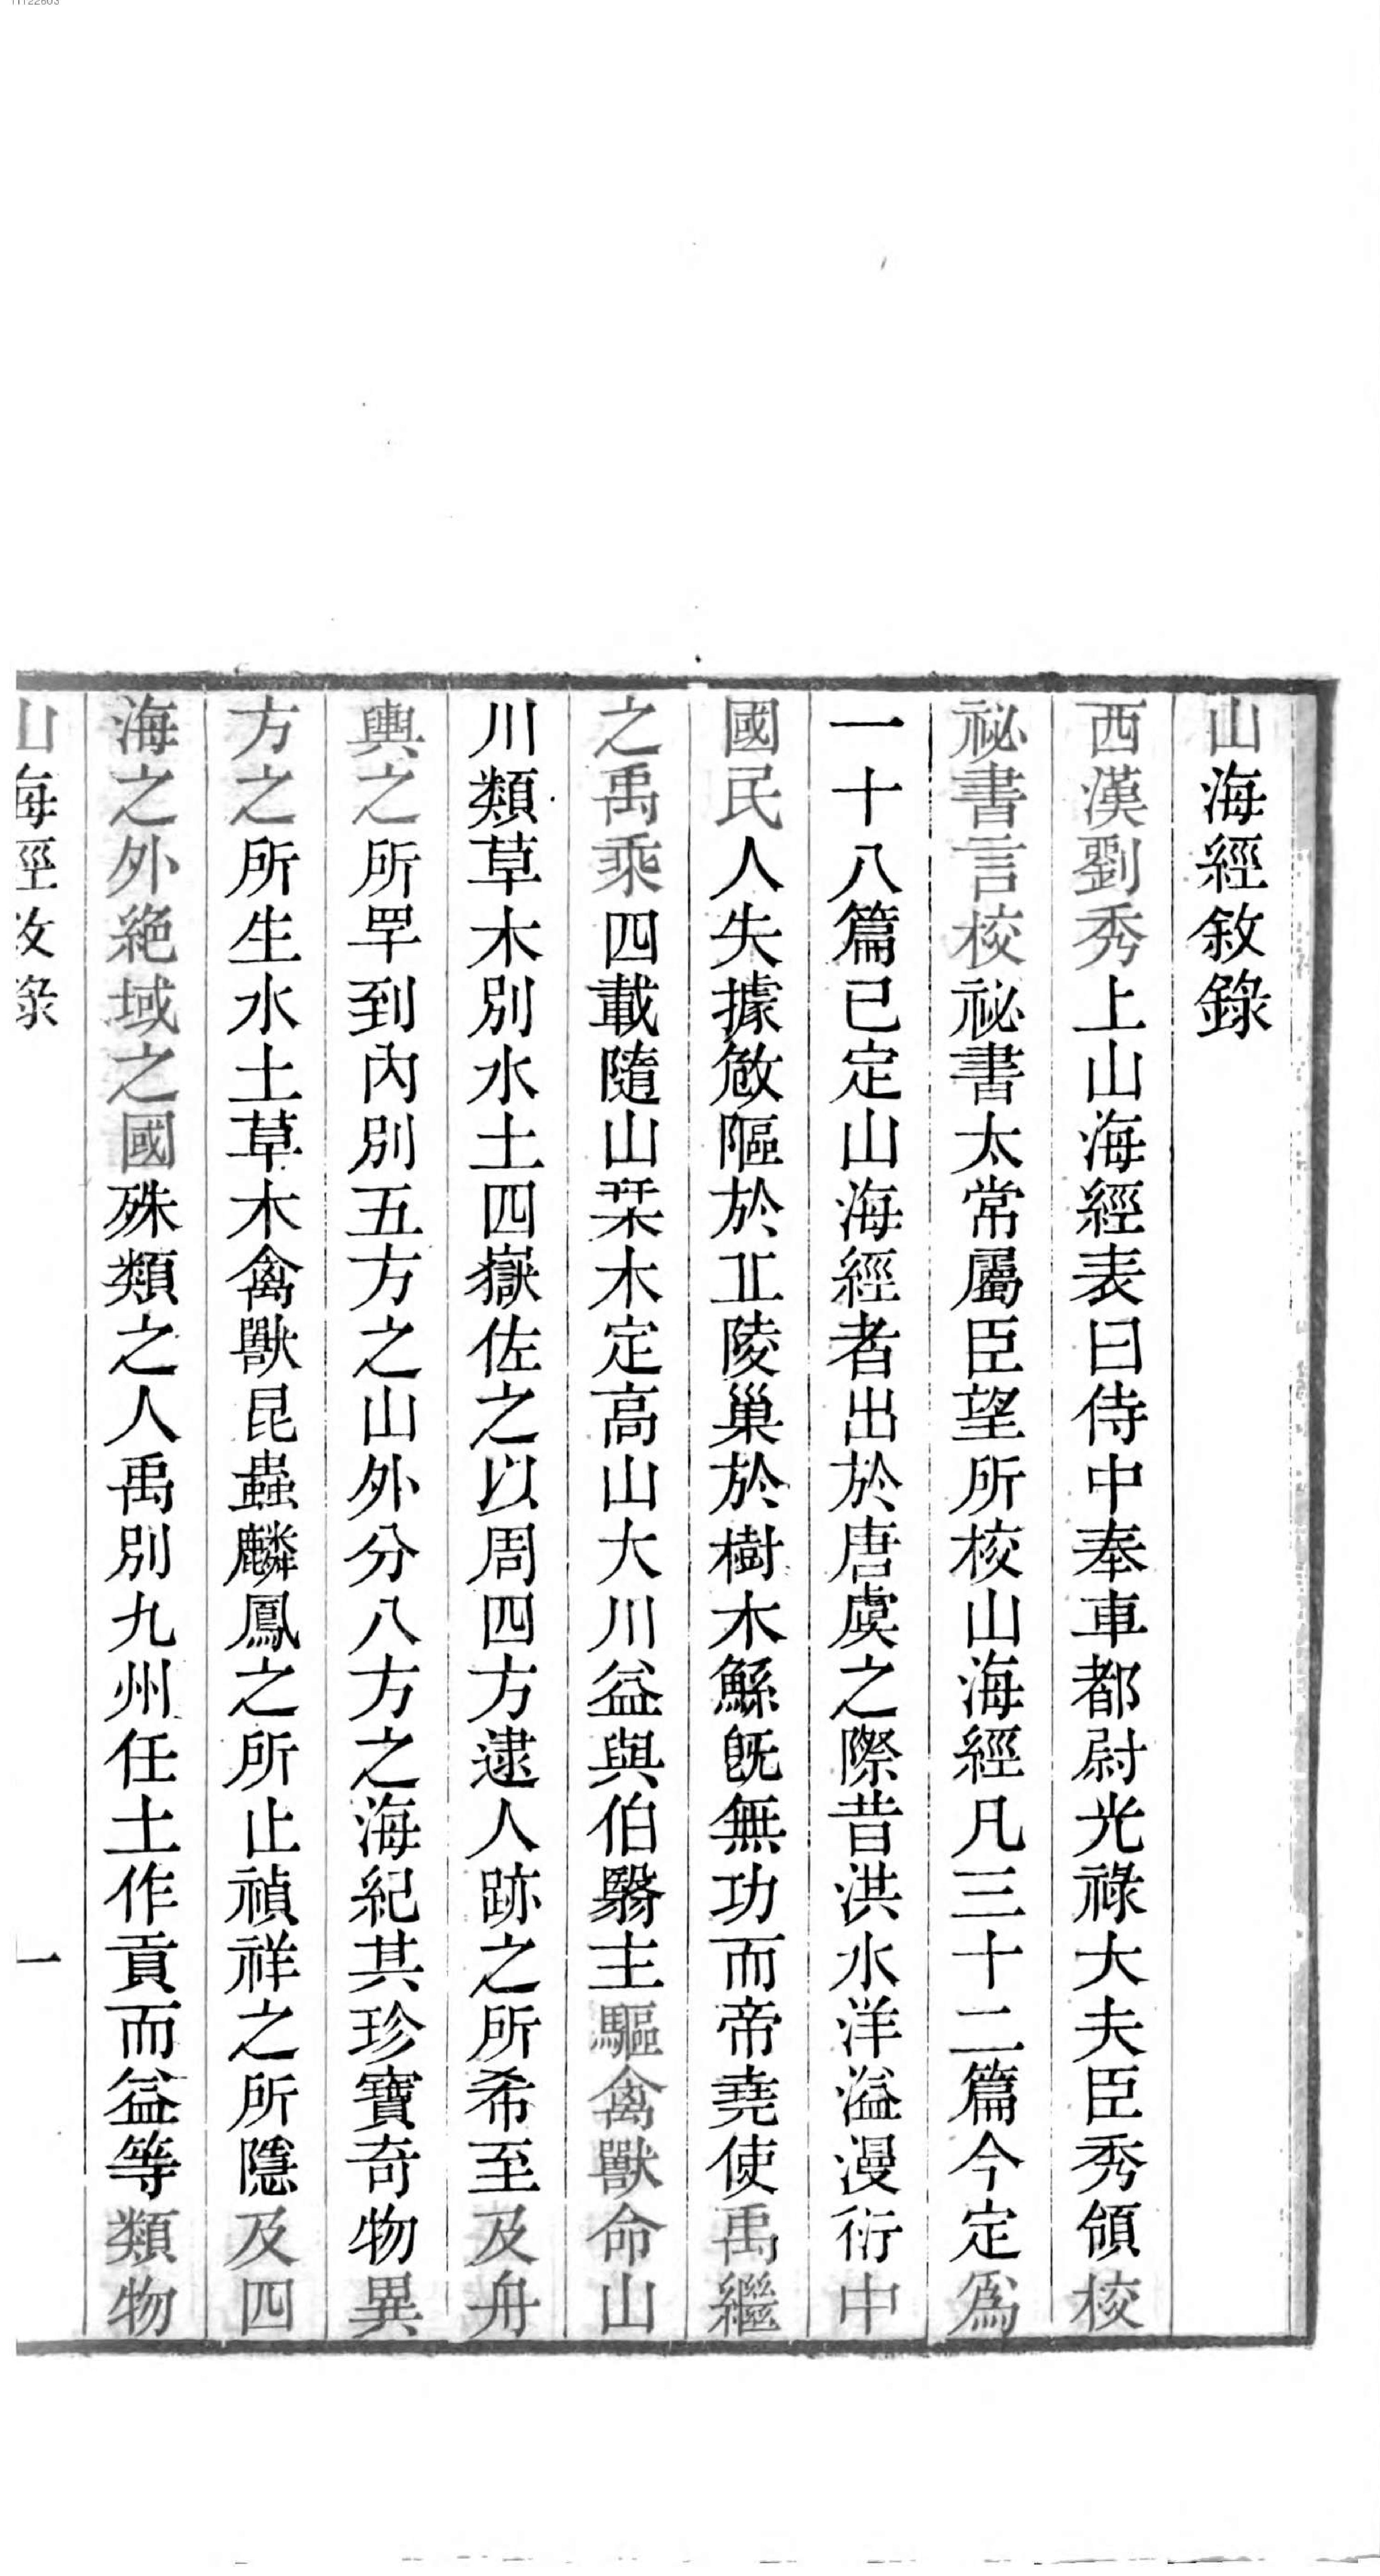 山海經敘錄
西漢劉秀上山海經表曰侍中奉車都尉光祿大夫臣秀領校
祕書言校祕書太常屬臣望所校山海經凡三十二篇今定爲
一十八篇已定山海經者出於唐虞之際昔洪水洋溢漫衍中
國民人失據㪣䧢於丠陵巢於樹木鯀旣無功而帝堯使禹繼
之禹乘四載隨山栞木定高山大川益與伯翳主驅禽獸命山
川類草木別水土四嶽佐之以周四方逮人跡之所希至及舟
輿之所罕到內別五方之山外分八方之海紀其珍寶奇物異
方之所生水土草木禽獸昆蟲麟鳳之所止禎祥之所隱及四
海之外絶域之國殊類之人禹別九州任土作貢而益等類物
山海經敘錄
一